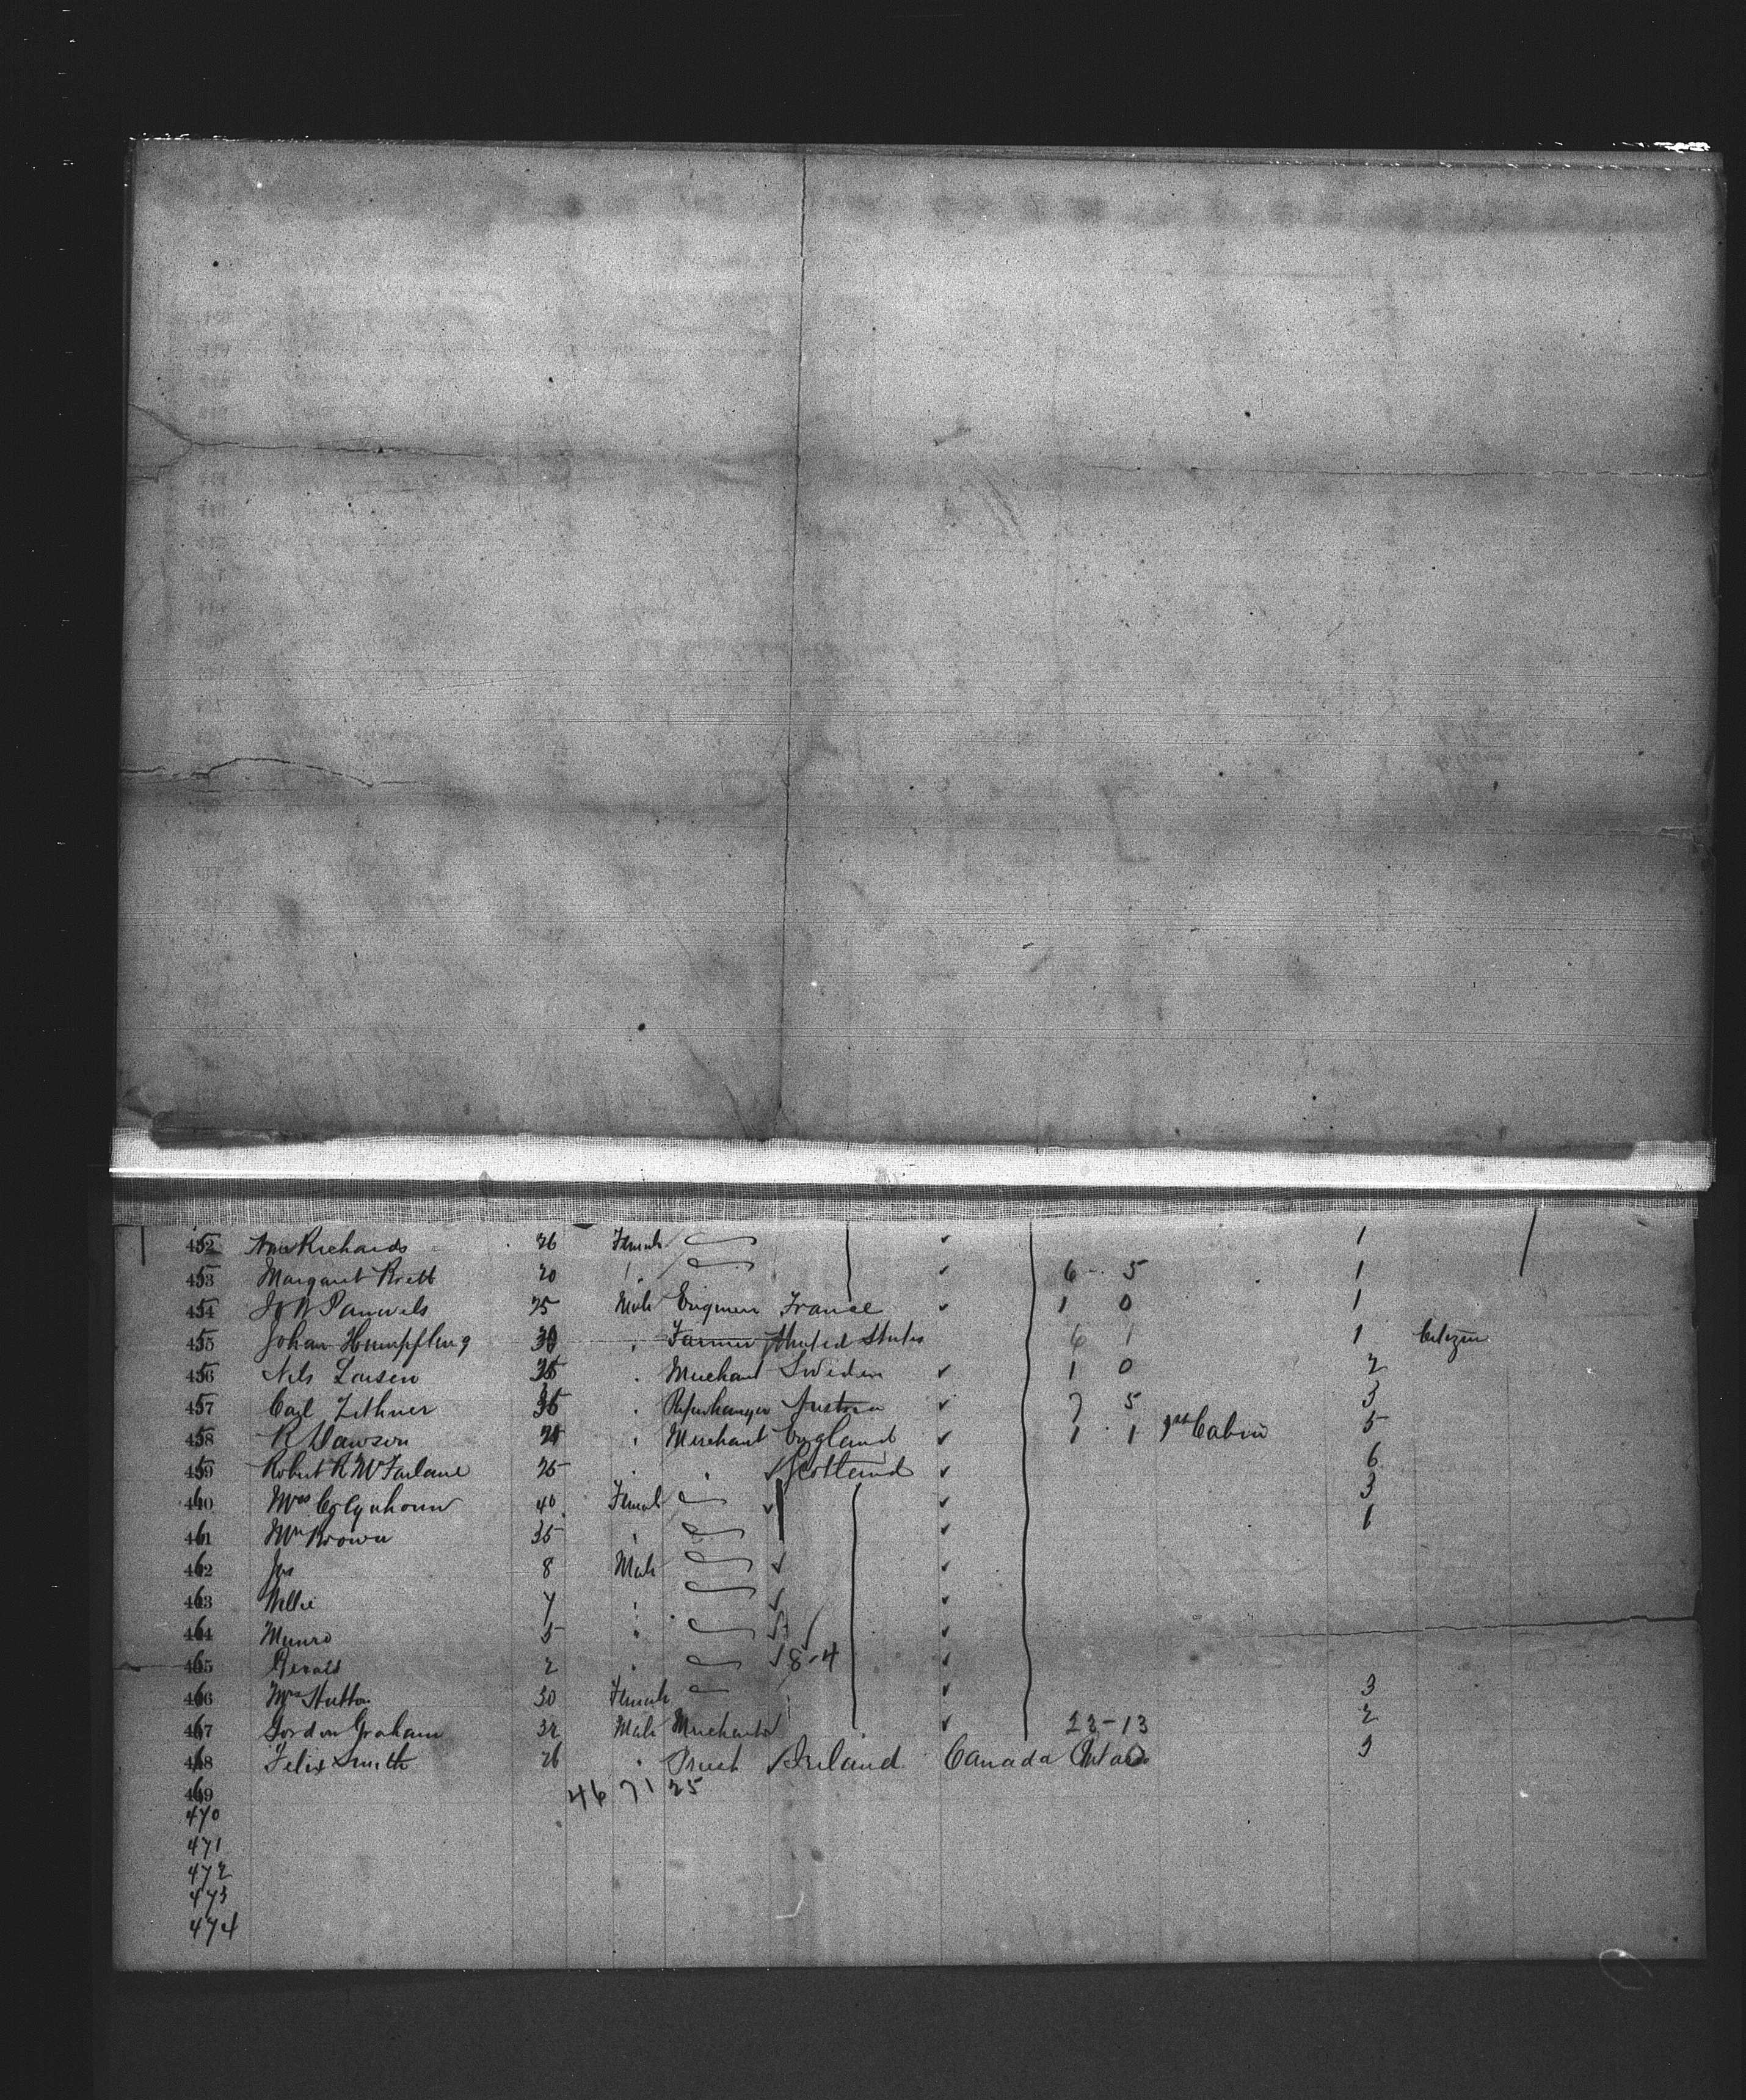 452 Ann Richards 26 Female 1
453 Margaret Rieth 20 " 6 - 5 1
454 J N Pauwels 25 Male Engineer France 1 0 1
455 Johan Humpfling 30 " Farmer United States 6 1 1 Citizen
456 Nils Larsen 35 " Merchant Sweden 1 0 2
457 Carl Zithner 36 " Austria 7 5 3
458 R Dawson 24 " Merchant England 1 1 1st Cabin 5
459 Robert R McFarlane 25 " " Scotland 6
460 Mrs Colquhoun 40 Female 3
461 Mrs Brown 35 " 1
462 Jas 8 Male
463 Willie 7 "
464 Munro 5 "
465 Gerald 2 " 8-4
466 Mrs Hutton 30 Female 3
467 Gordon Graham 32 Male Merchant 23-13 2
468 Felix Smith 26 " Priest Ireland Canada Ontario 3
469 46 71 25
470
471
472
473
474